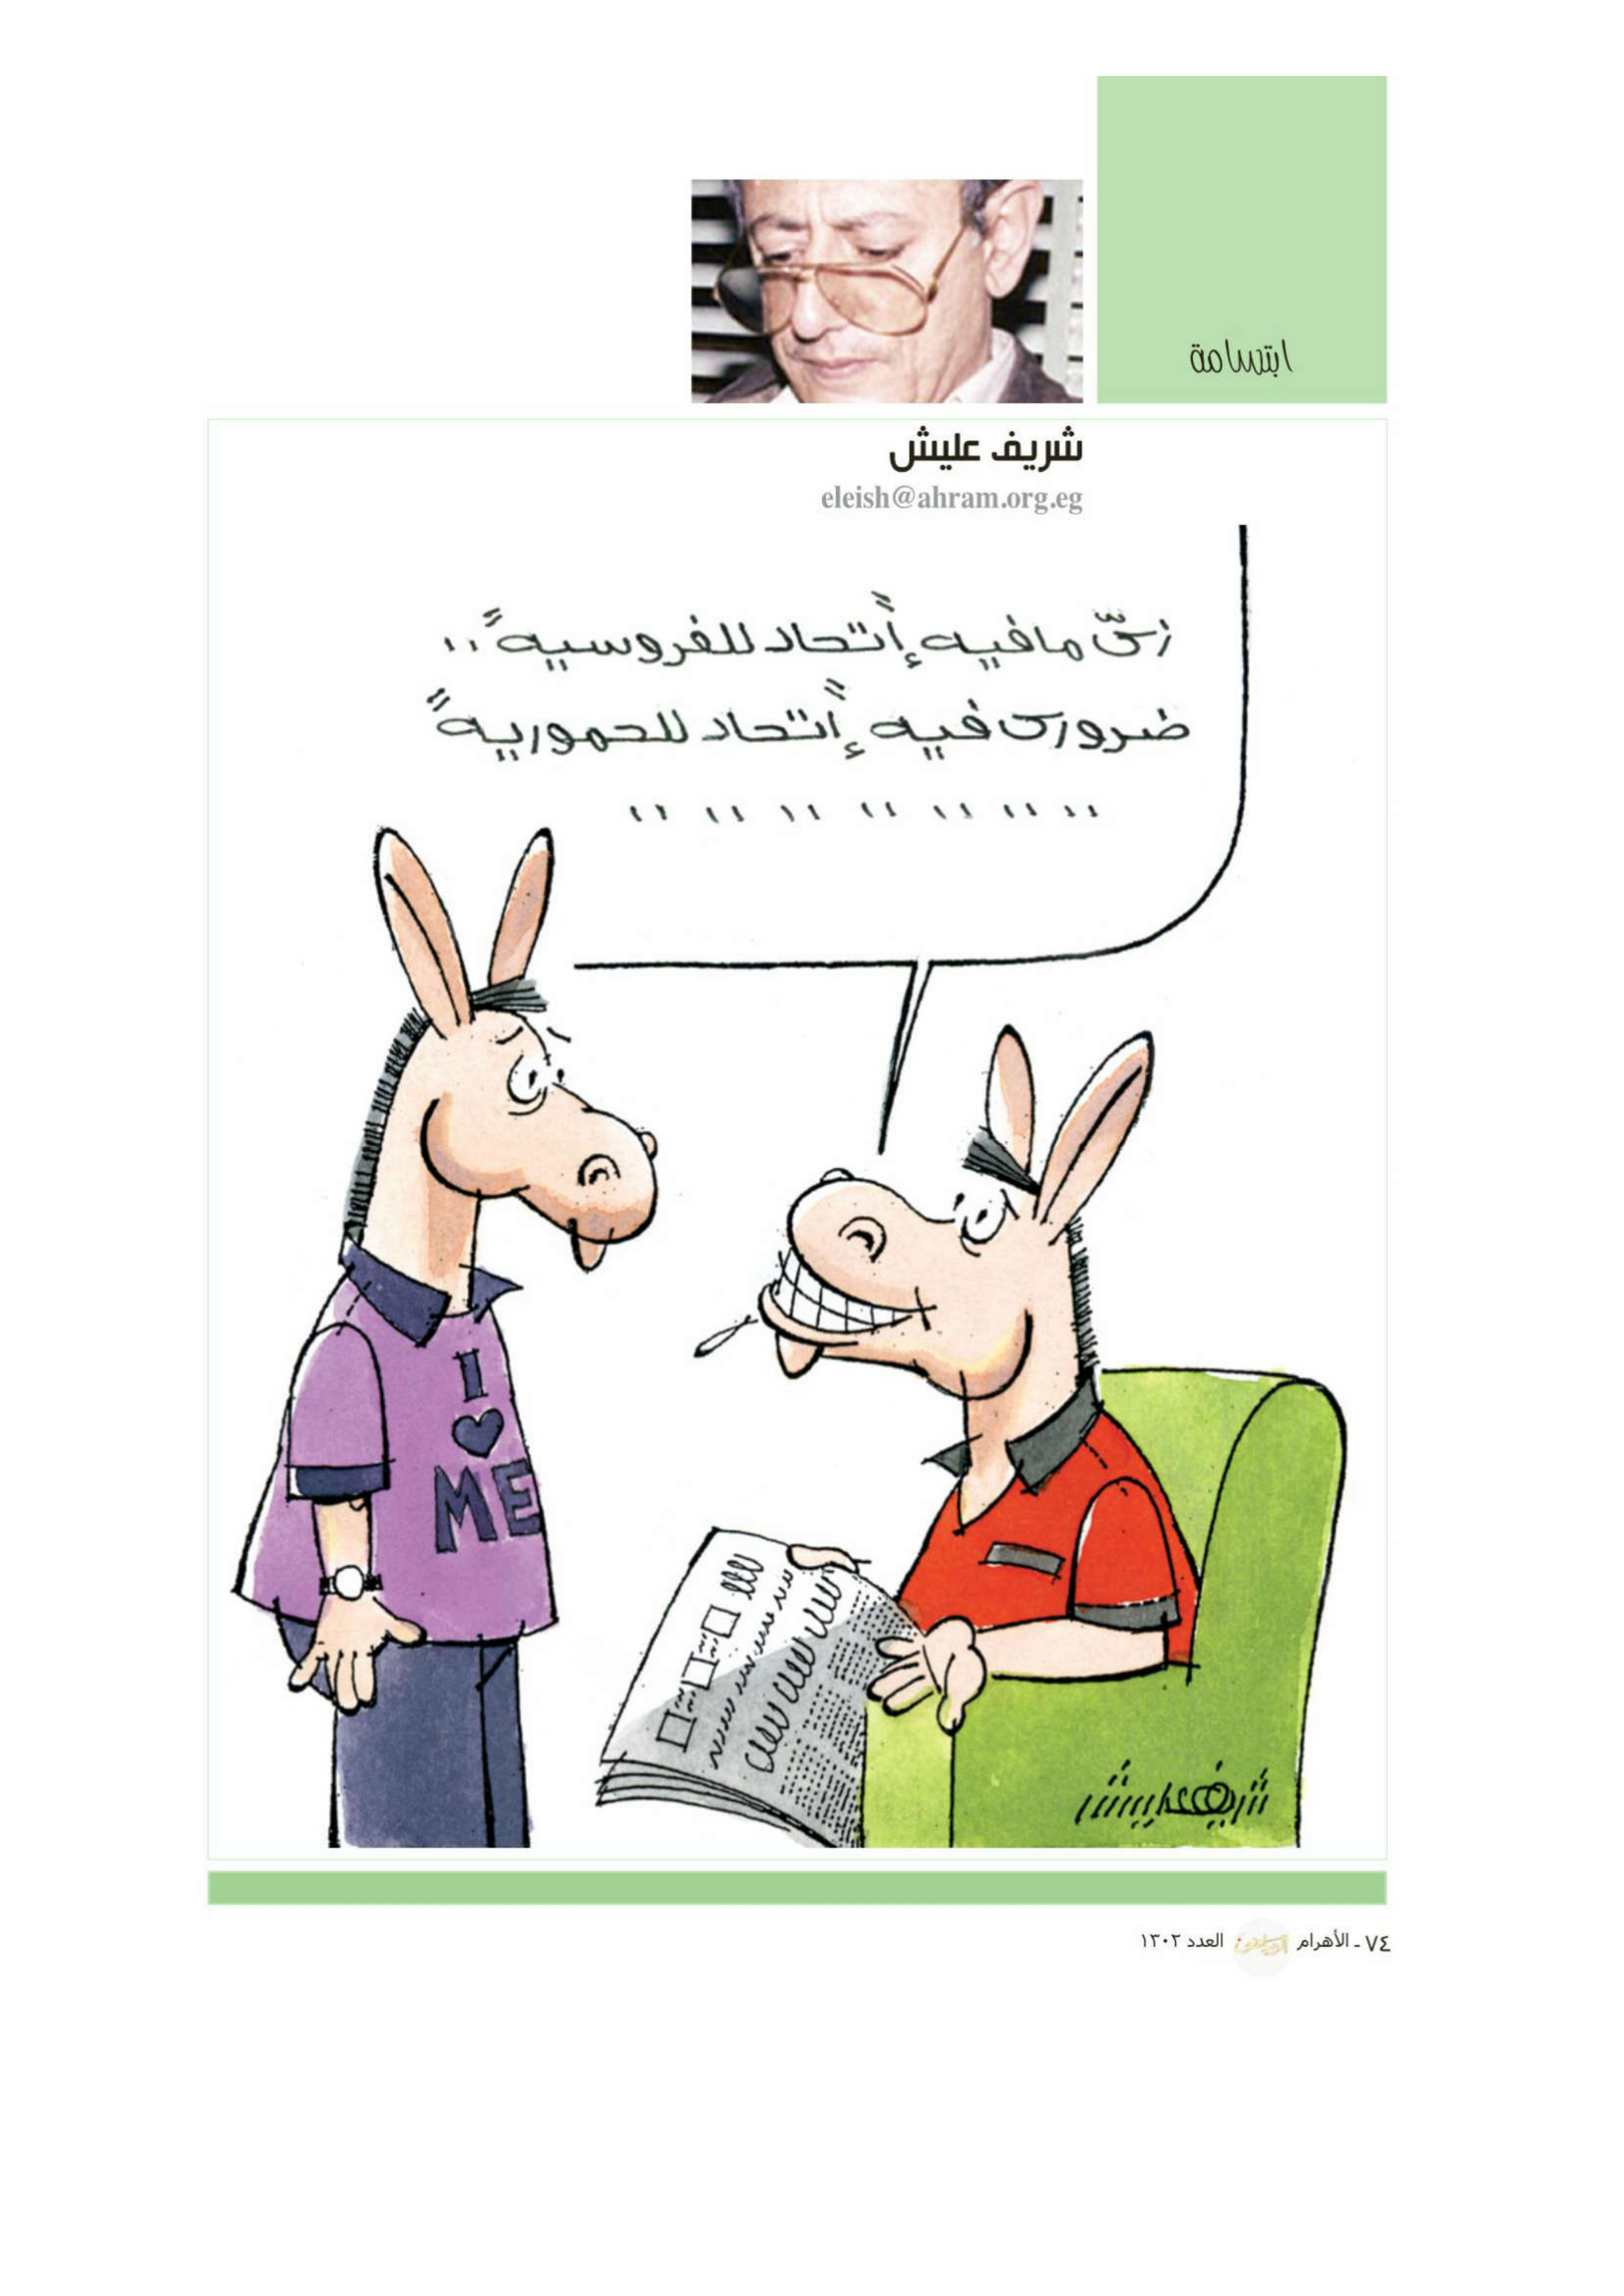 ابتسامة
شريف عليش
eleish@ahram.org.eg
زىّ مافيه إتحاد للفروسيه..
ضرورى فيه إتحاد للحموريه
I
♥
ME
شريف عليش
٧٤ ـ الأهرام الرياضى العدد ١٣٠٢